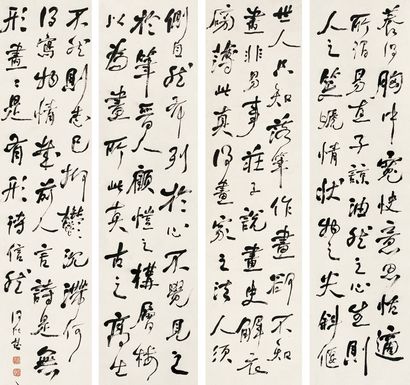 世人只知落筆作畫却不知
畫非易事莊子說畫史解衣
磅礴此真得畫家之法人須
養得胸中寬快意思恬適
所謂易直子諒油然之心生則
人之笑嗁情狀物之尖斜偃
側自然布列於心不覺見之
於筆晉人顧愷之構層樓
以為畫所此真古之高士
不然則志已抑鬱沉滯何
得寫物情哉前人言詩是無
形畫畫是有形詩信然
何紹基